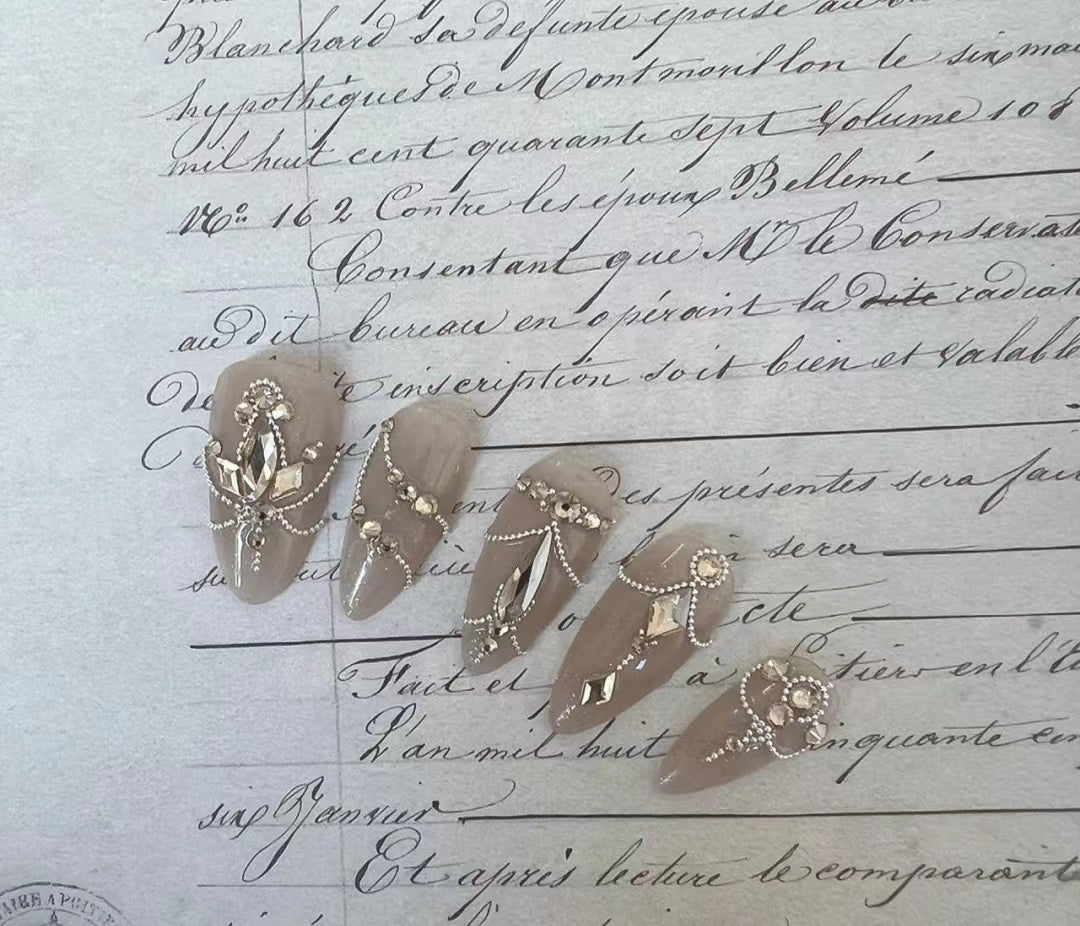 Blanchard sa défunte épouse au
hypothéques de Montmorillon le six mai
mil huit cent quarante sept Volume 108
No. 162 Contre les époux Bellemé
Consentant que Mr le Conservat
au dit bureau en opérant la dite radiat
De inscription soit bien et valable
Des présentes sera fai
à sera
cte
Fait et à Poitiers en l'
L'an mil huit cinquante
six Janvier
Et après lecture le comparant